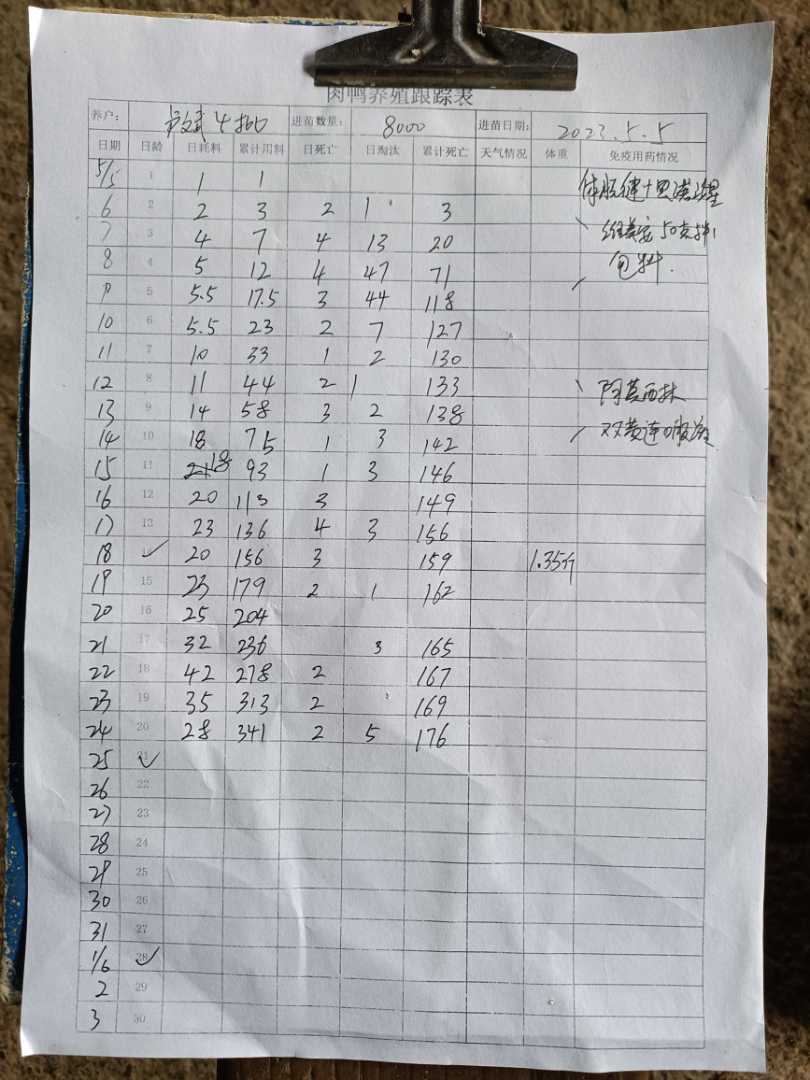 肉鸭养殖跟踪表
养户： 4批 进苗数量： 8000 进苗日期： 2023.5.5
日期 日龄 日耗料 累计用料 日死亡 日淘汰 累计死亡 天气情况 体重 免疫用药情况
5/5 1 1 1
6 2 2 3 2 1 3
7 3 4 7 4 13 20
8 4 5 12 4 47 71
9 5 5.5 17.5 3 44 118
10 6 5.5 23 2 7 127
11 7 10 33 1 2 130
12 8 11 44 2 1 133 阿莫西林
13 9 14 58 3 2 138
14 10 18 75 1 3 142 双黄连口服液
15 11 18 93 1 3 146
16 12 20 113 3 149
17 13 23 136 4 3 156
18 ✓ 20 156 3 159 1.35斤
19 15 23 179 2 1 162
20 16 25 204
21 17 32 236 3 165
22 18 42 278 2 167
23 19 35 313 2 169
24 20 28 341 2 5 176
25 21 ✓
26 22
27 23
28 24
29 25
30 26
31 27
1/6 28 ✓
2 29
3 30